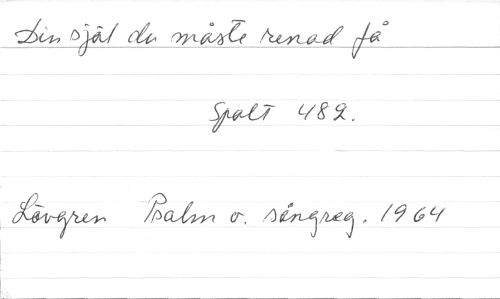 Din själ du måste renad få
Spalt 482.
Lövgren Psalm o. sångreg. 1964